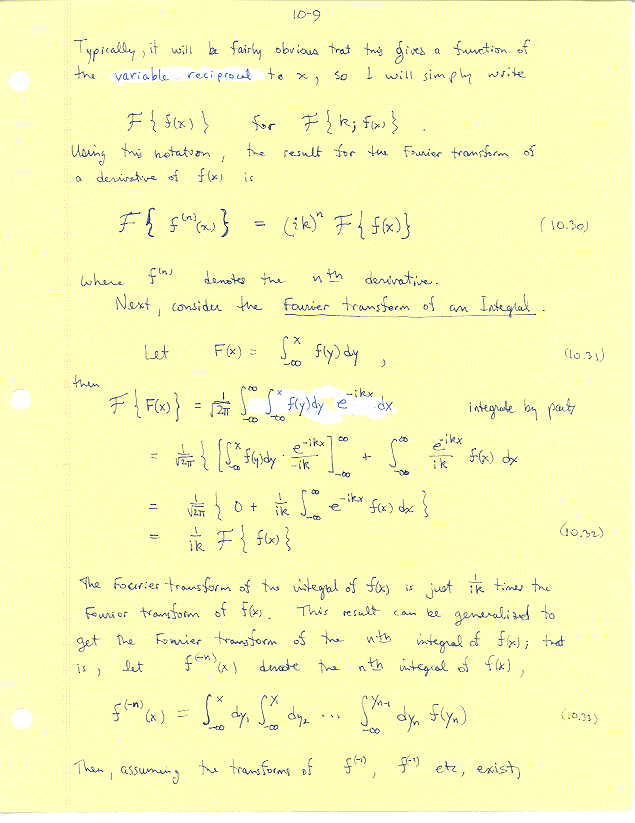 10-9
Typically, it will be fairly obvious that this gives a function of
the variable reciprocal to x, so I will simply write
ℱ{f(x)} for ℱ{k; f(x)} .
Using this notation, the result for the Fourier transform of
a derivative of f(x) is
ℱ{f^(n)(x)} = (ik)^n ℱ{f(x)} (10.30)
where f^(n) denotes the nth derivative.
Next, consider the Fourier transform of an Integral.
Let F(x) = ∫_{-∞}^{x} f(y)dy , (10.31)
then
ℱ{F(x)} = 1/√2π ∫_{-∞}^{∞} ∫_{-∞}^{x} f(y)dy e^{-ikx} dx integrate by parts
= 1/√2π { [∫_{-∞}^{x} f(y)dy · e^{-ikx}/-ik ]_{-∞}^{∞} + ∫_{-∞}^{∞} e^{-ikx}/ik f(x) dx
= 1/√2π { 0 + 1/ik ∫_{-∞}^{∞} e^{-ikx} f(x) dx }
= 1/ik ℱ{f(x)} (10.32)
The Fourier transform of the integral of f(x) is just 1/ik times the
Fourier transform of f(x). This result can be generalized to
get the Fourier transform of the nth integral of f(x); that
is, let f^(-n)(x) denote the nth integral of f(x),
f^(-n)(x) = ∫_{-∞}^{x} dy₁ ∫_{-∞}^{y₁} dy₂ ... ∫_{-∞}^{y_{n-1}} dy_n f(y_n) (10.33)
Then, assuming the transforms of f^(-1), f^(-2) etc, exist,